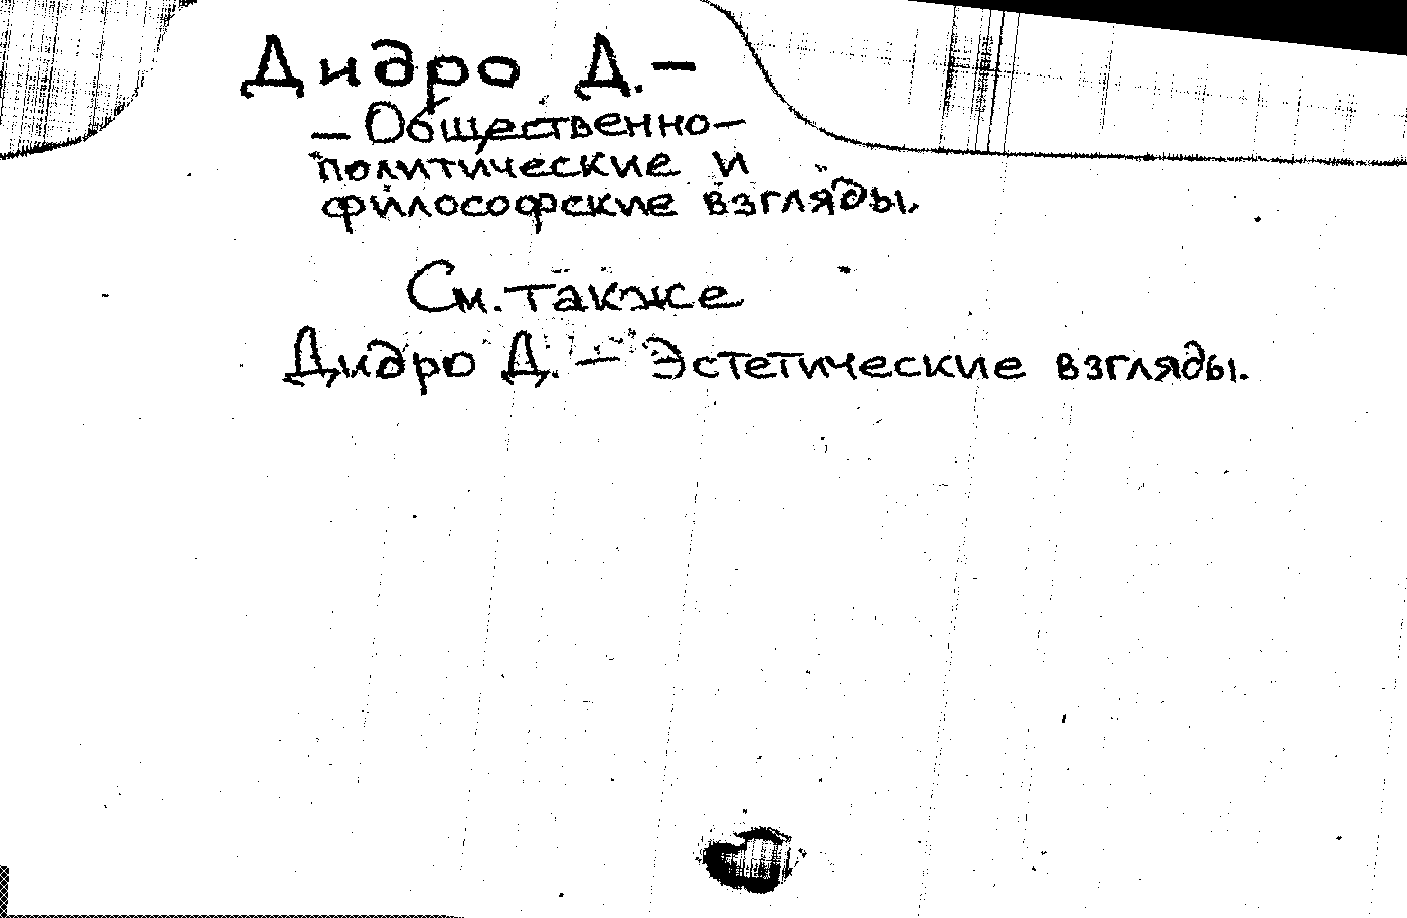 Дидро Д. –
– Общественно-
политические и
философские взгляды.
См. также
Дидро Д. – Эстетические взгляды.